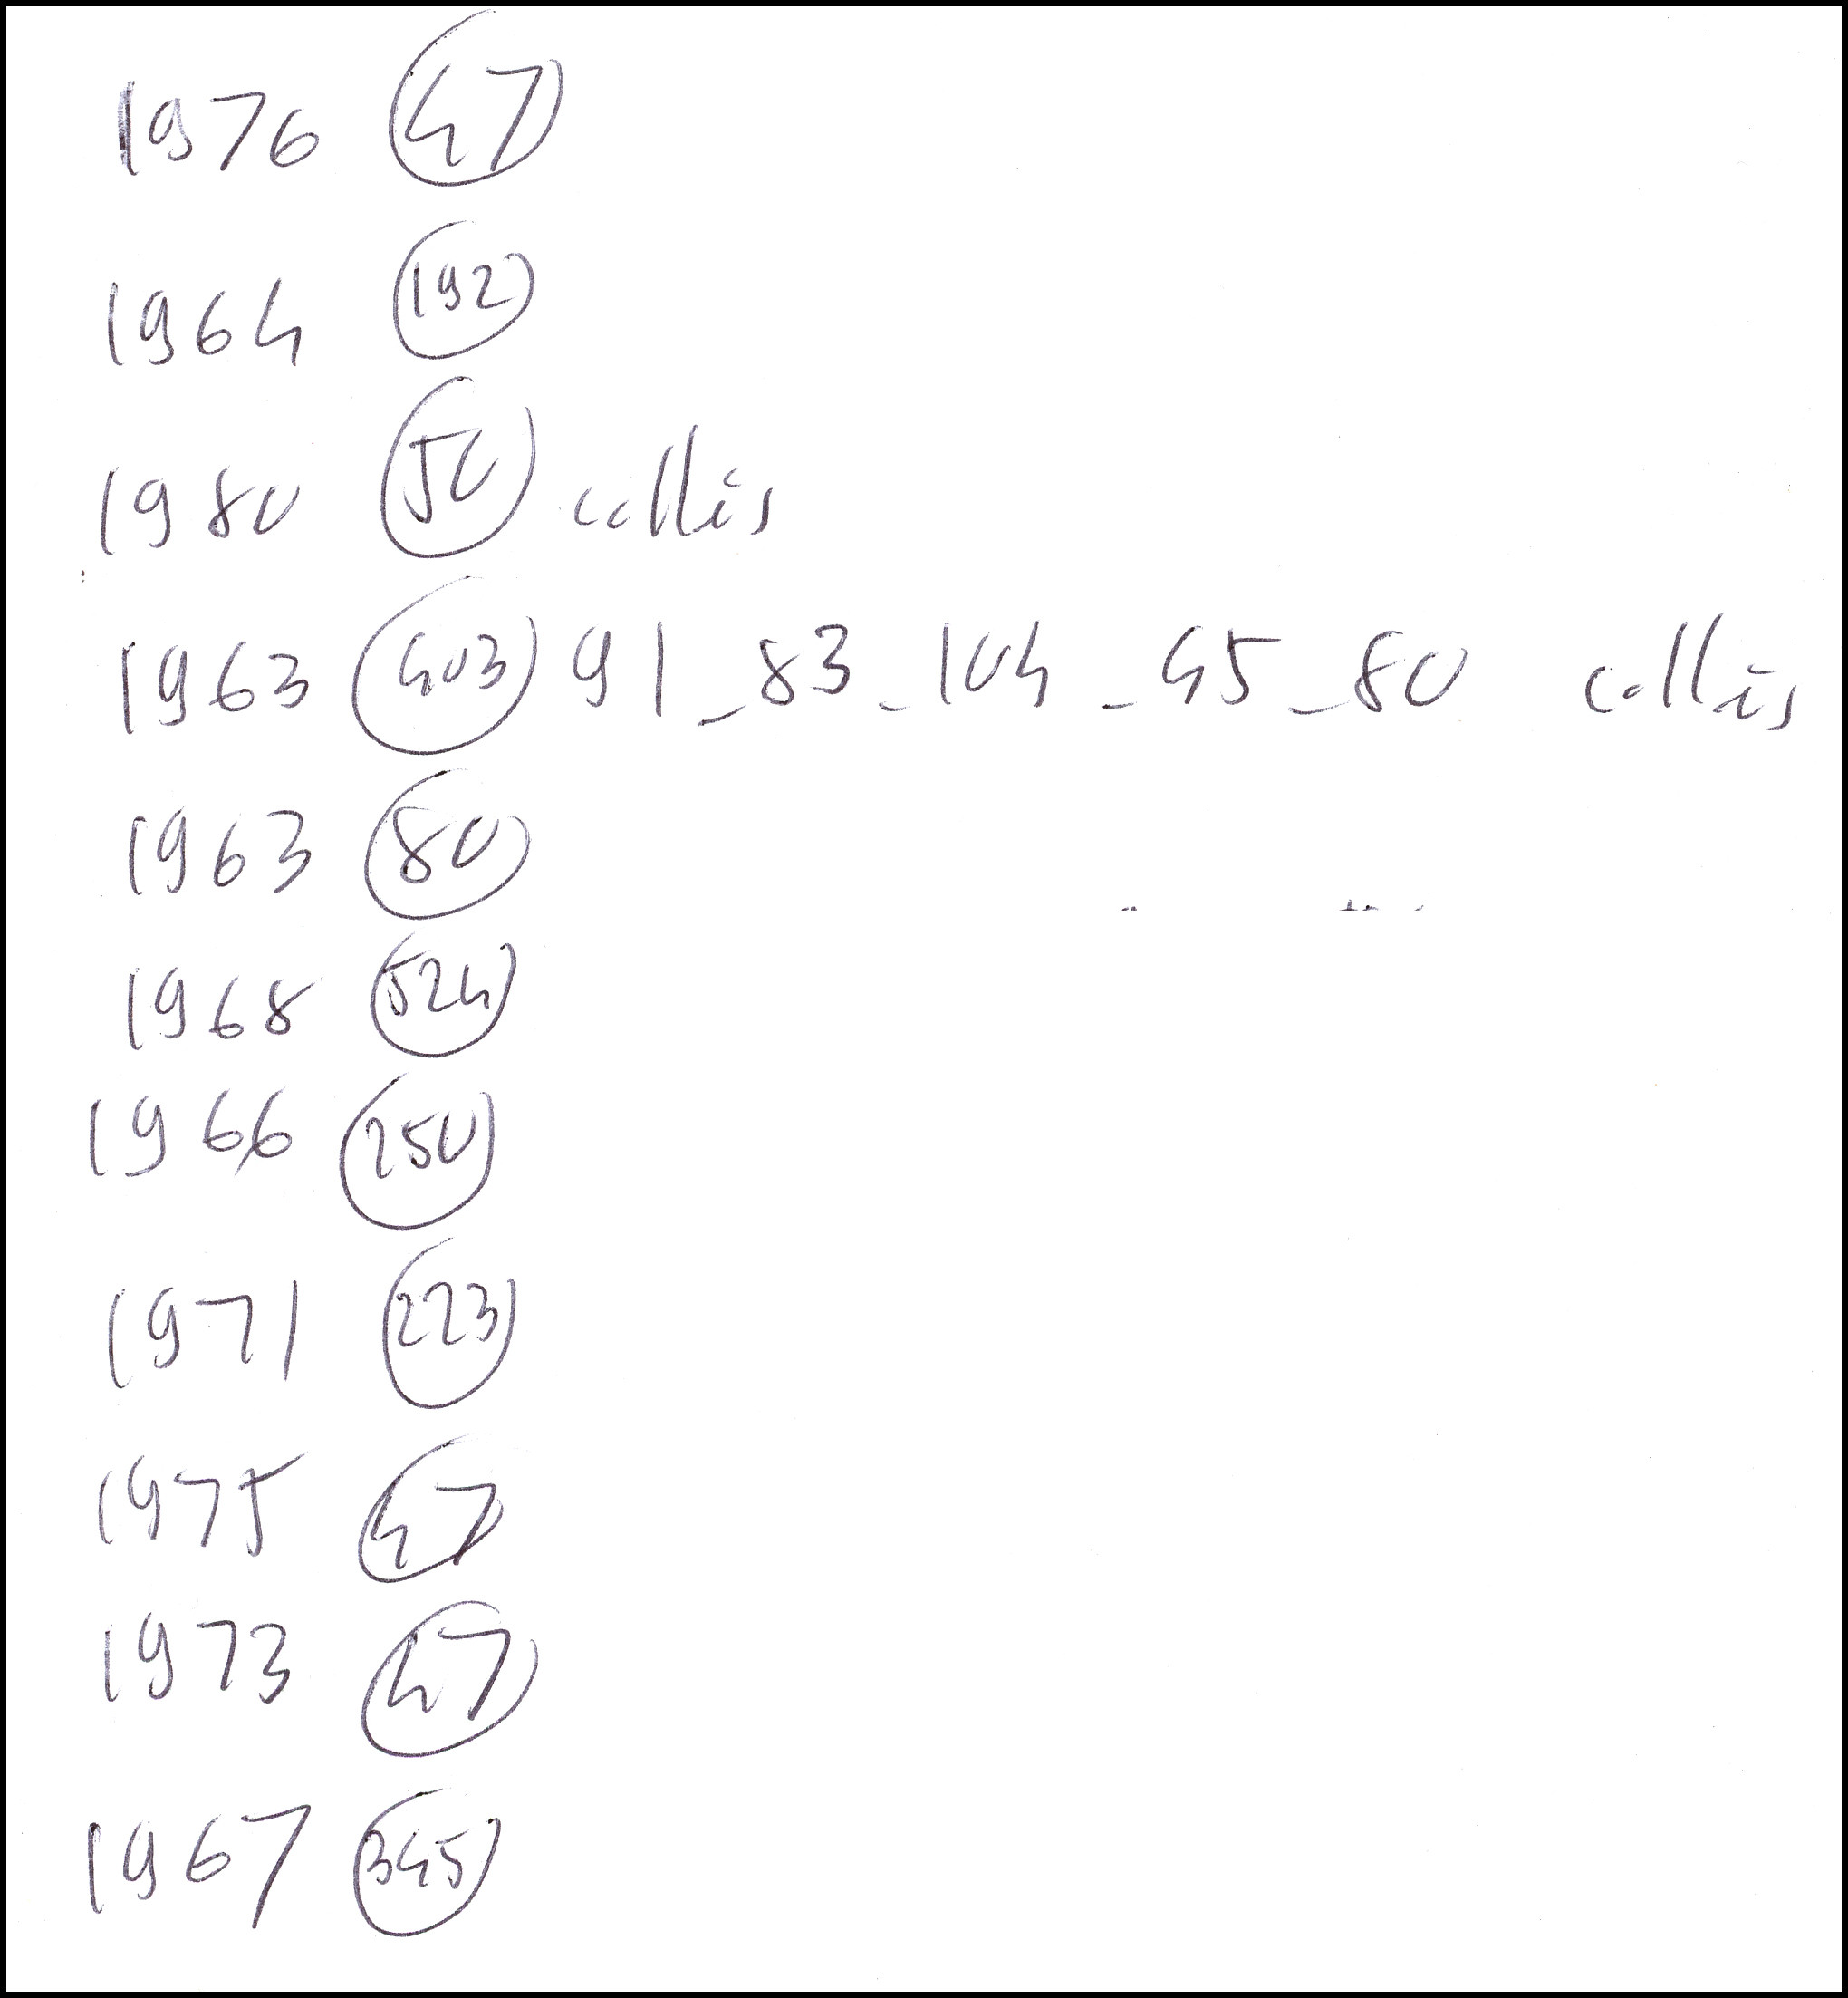 1976 47
1964 192
1980 50 collis
1963 403 91_83_104_45_80 collis
1963 80
1968 524
1966 250
1971 223
1975 47
1973 47
1967 345